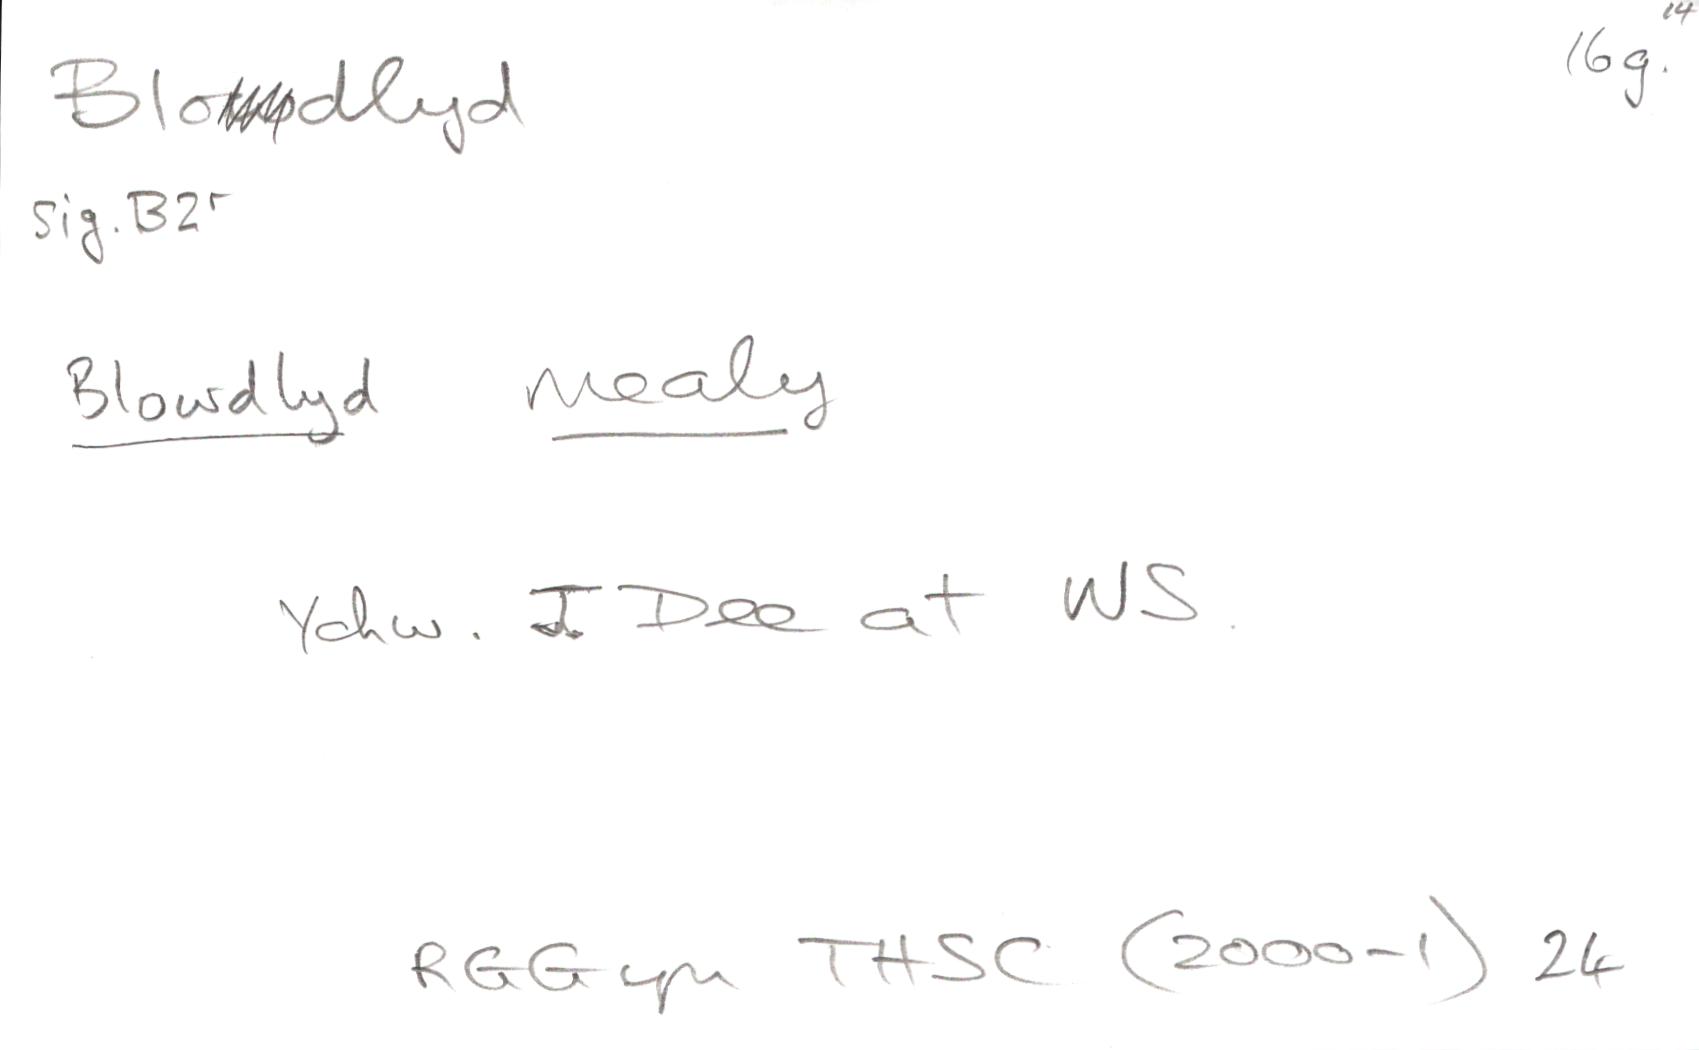 Blowdlyd 16g.¹⁴
Sig. B2ʳ
Blowdlyd mealy
Ychw. I Dee at WS.
RGG yn THSC (2000-1) 24